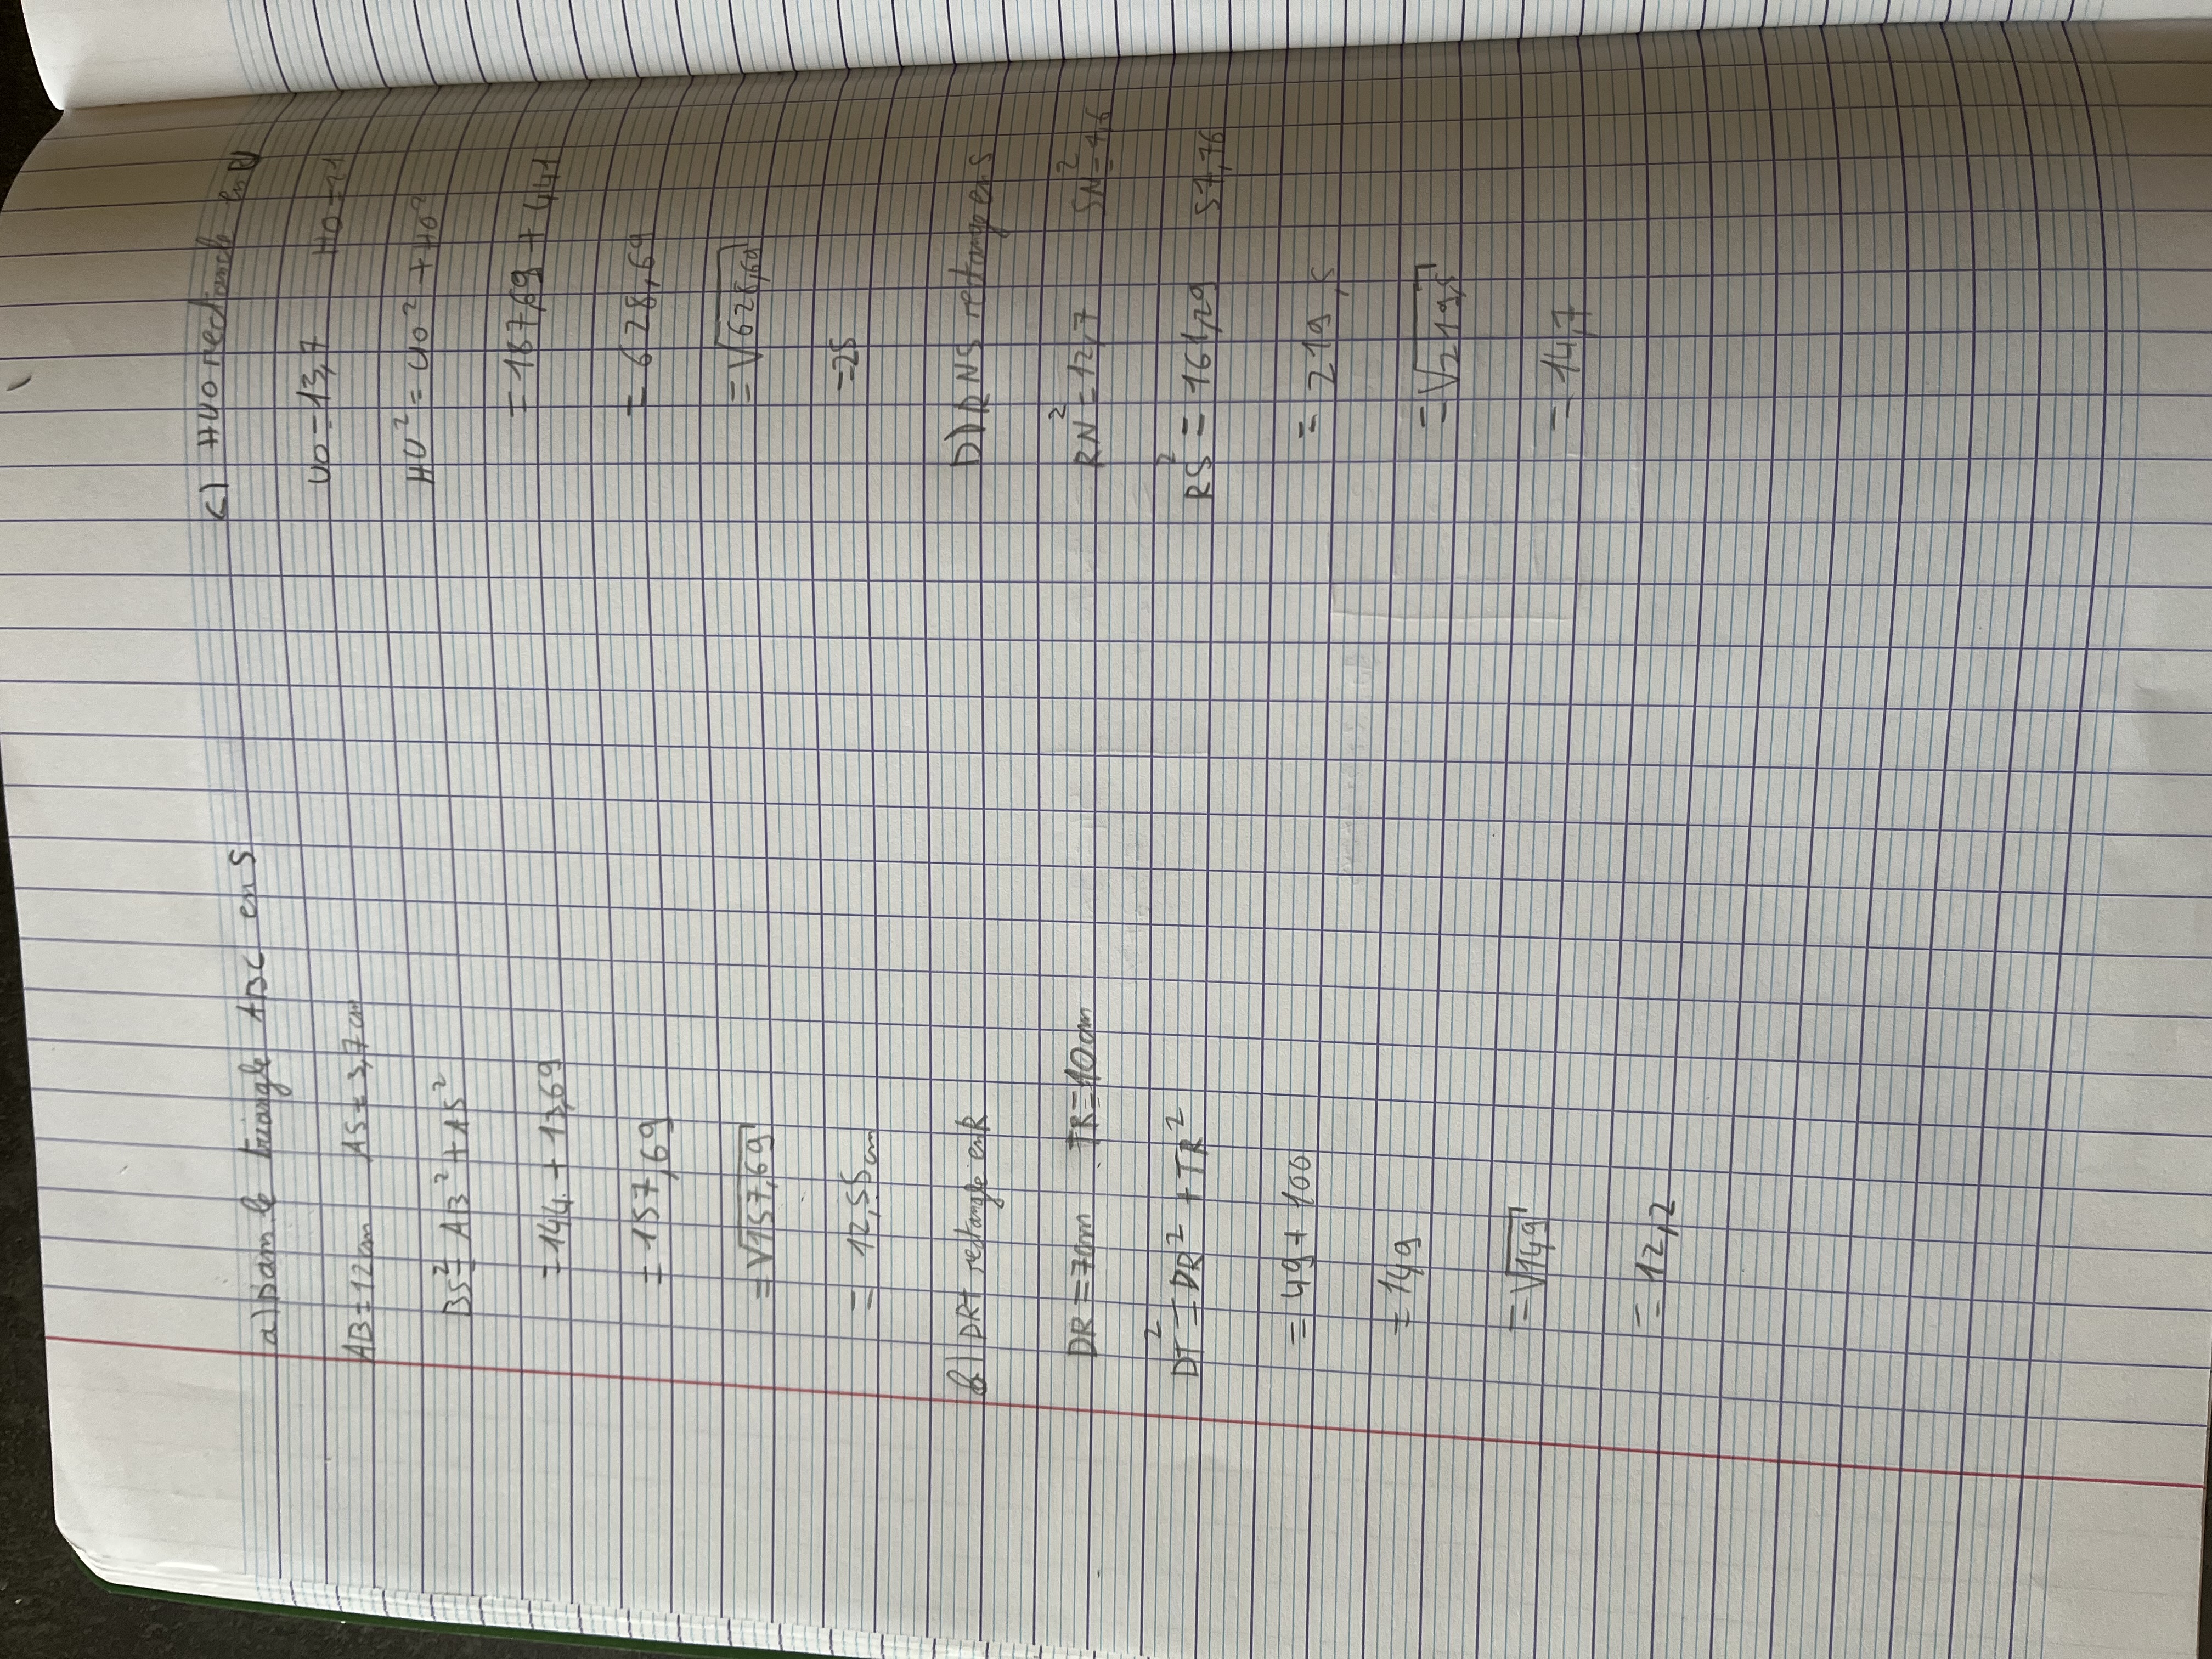 a) Dans le triangle ABC en S
AB = 12 cm AS = 3,7 cm
BS² = AB² + AS²
= 144 + 13,69
= 157,69
= √157,69
= 12,55 cm
b) DRT rectangle en R
DR = 7cm TR = 10 cm
DT² = DR² + TR²
= 49 + 100
= 149
= √149
= 12,2
c) HUO rectangle en U
UO = 13,7 HO = 21
HU² = UO² + HO²
= 187,69 + 441
= 628,69
= √628,69
= 25
D) RNS rectange en S
RN² = 12,7 SN² =
RS² = 161,29 57,76
= 219,5
= √219,5
= 14,7